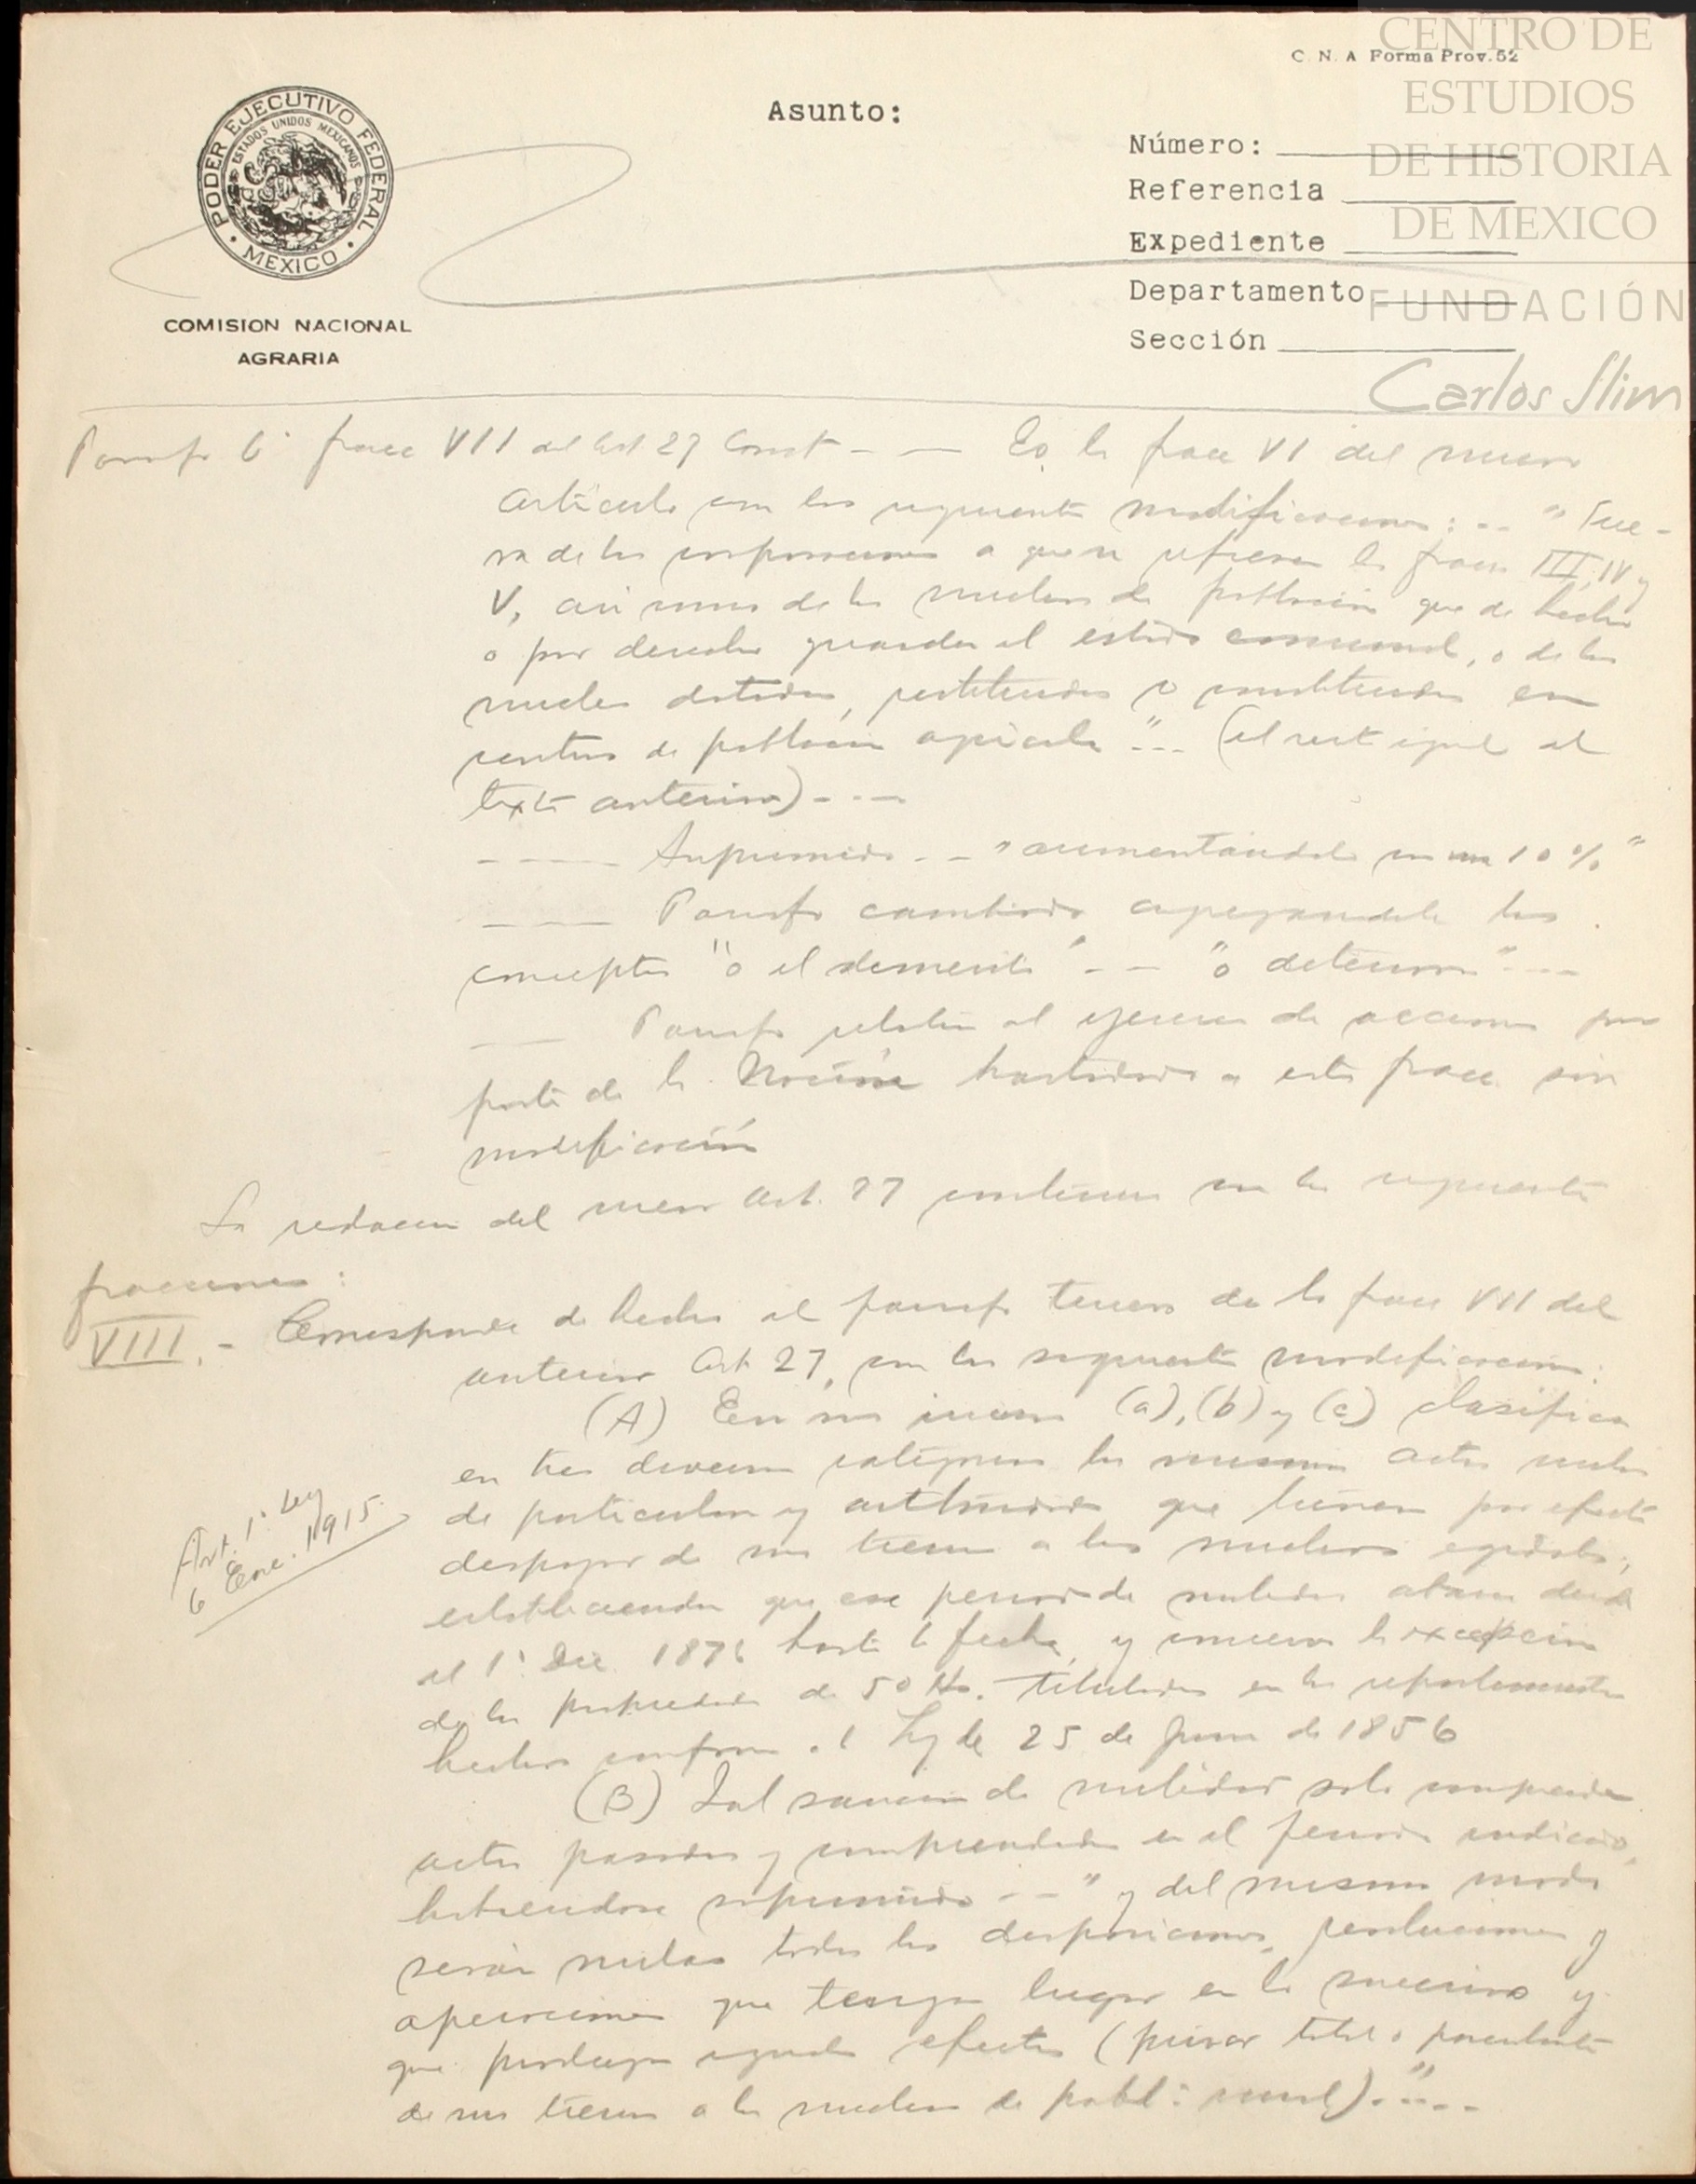 CENTRO DE
ESTUDIOS
DE HISTORIA
DE MEXICO
FUNDACIÓN
Carlos Slim
C. N. A Forma Prov. 52
PODER EJECUTIVO FEDERAL
ESTADOS UNIDOS MEXICANOS
MEXICO
COMISION NACIONAL
AGRARIA
Asunto:
Número:
Referencia
Expediente
Departamento
Sección
Parrafo 6º fracc VII del Art 27 Const - — Es la fracc VI del nuevo
artículo con las siguientes modificaciones: -- " Fue-
ra de las corporaciones a que se refieren las fracc III, IV y
V, asi como de los nucleos de población que de hecho
o por derecho guarden el estado comunal, o de los
nucleos dotados, restituidos o constituidos en
centros de población agricola" -- (el resto igual al
texto anterior) - - -
- — Suprimido - - "aumentándole en un 10%"
- — Parrafo cambiado, agregandole los
conceptos "o el demerito" - - "o deterioro" - - -
— Parrafo relativo al ejercicio de acciones por
parte de la Nación trasladado a esta fracc. sin
modificación
La redaccion del nuevo Art. 27 continua en las siguientes
fracciones:
VIII. - Corresponde de hecho al parrafo tercero de la fracc VII del
anterior Art 27, con las siguientes modificaciones:
(A) En sus incisos (a), (b) y (c) clasifica
en tres diversas categorias los mismos actos nulos
de particulares y autoridades que tienen por efecto
despojar de sus tierras a los nucleos ejidales,
estableciendo que ese periodo de nulidad abarca desde
el 1º Dic. 1876 hasta la fecha, y conserva la excepcion
de las propiedades de 50 Hs. tituladas en los repartimientos
hechos conforme a la Ley de 25 de Junio de 1856
Art. 1º Ley
6 Ene. 1915.
(B) Tal sancion de nulidad solo comprende
actos pasados y comprendidos en el periodo indicado,
habiendose suprimido - - " y del mismo modo
serán nulas todas las disposiciones, resoluciones y
operaciones que tengan lugar en lo sucesivo y
que produzcan iguales efectos (privar total o parcialmente
de sus tierras a los nucleos de pobl: rural)." - - -